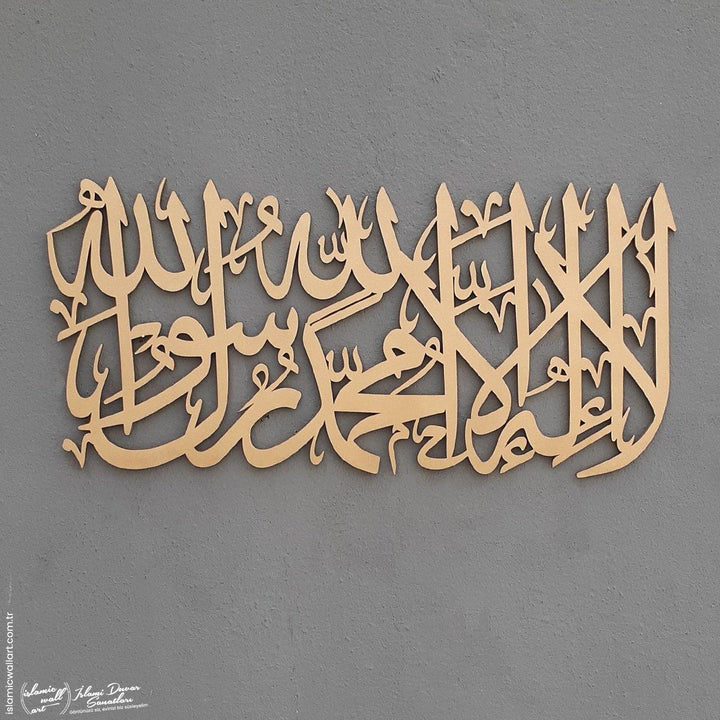 لا إله إلا الله محمد رسول الله
islamicwallart.com.tr
islamic wall art
İslami Duvar Sanatları